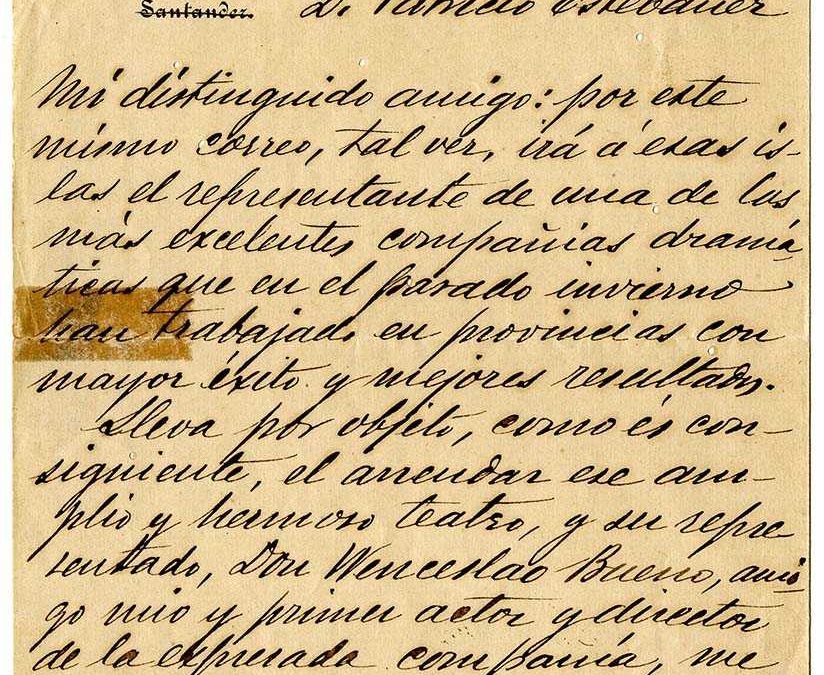 Santander. D. Patricio Estévanez
Mi distinguido amigo: por este
mismo correo, tal ver, irá á esas is-
las el representante de una de las
más excelentes compañias dramá-
ticas que en el pasado invierno
han trabajado en provincias con
mayor éxito y mejores resultados.
Lleva por objeto, como és con-
siguiente, el arrendar ese am-
plio y hermoso teatro, y su repre-
sentado, Don Wenceslao Bueno, ami
go mio y primer actor y director
de la expresada compañía, me